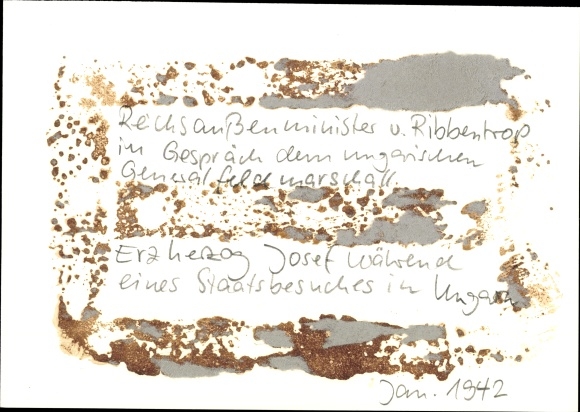 Reichsaußenminister v. Ribbentrop
im Gespräch dem ungarischen
Generalfeldmarschall
Erzherzog Josef während
eines Staatsbesuches in Ungarn
Jan. 1942